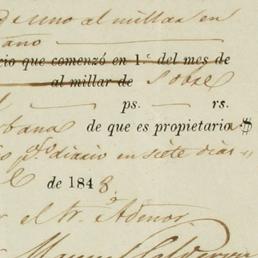 de uno al millar en
ano
cio que comenzó en 1.º del mes de
al millar de Sobre
ps. rs.
rbana de que es propietario $
diario en siete dias
de 1848.
el Sr. Adenor
Manuel Calderon